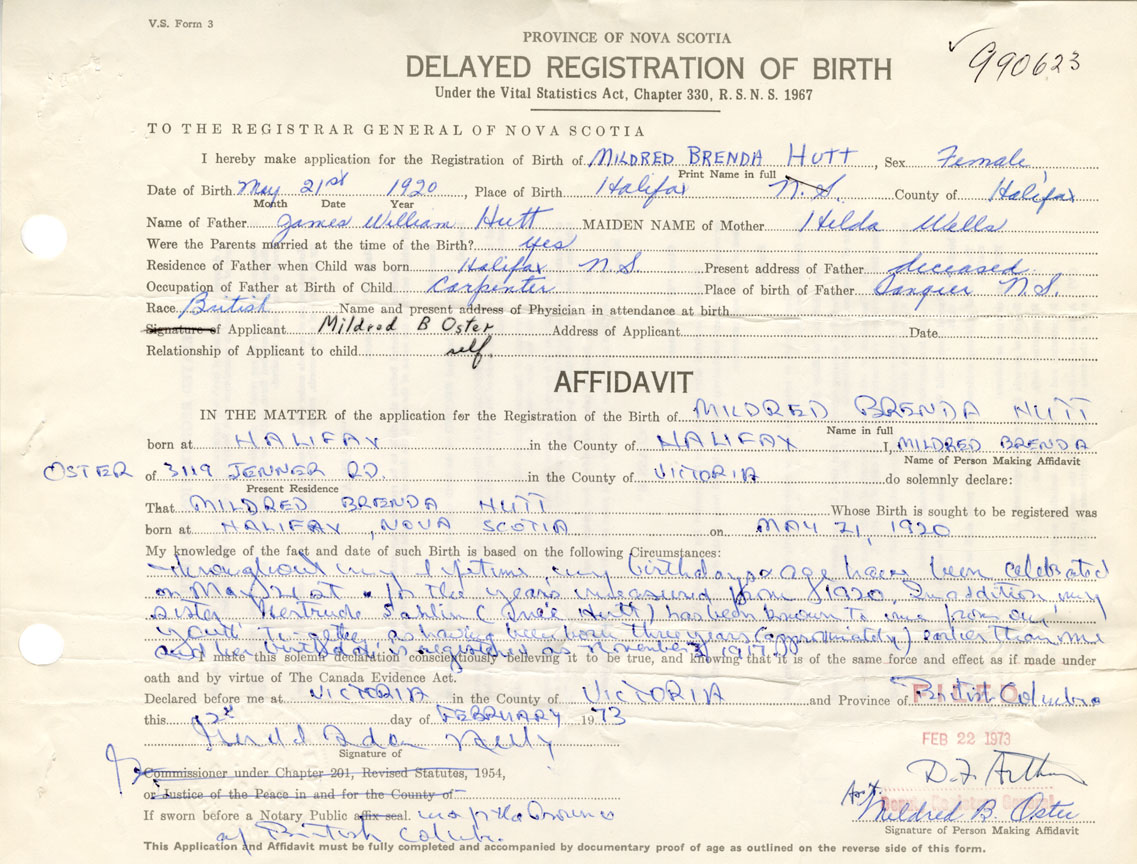 V.S. Form 3
PROVINCE OF NOVA SCOTIA
DELAYED REGISTRATION OF BIRTH
990623
Under the Vital Statistics Act, Chapter 330, R.S.N.S. 1967
TO THE REGISTRAR GENERAL OF NOVA SCOTIA
I hereby make application for the Registration of Birth of MILDRED BRENDA HUTT, Sex Female
Print Name in full
Date of Birth May 21st 1920, Place of Birth Halifax N.S. County of Halifax
Month Date Year
Name of Father James William Hutt MAIDEN NAME of Mother Hilda Wells
Were the Parents married at the time of the Birth? yes
Residence of Father when Child was born Halifax N.S. Present address of Father deceased
Occupation of Father at Birth of Child Carpenter Place of birth of Father Tangier N.S.
Race British Name and present address of Physician in attendance at birth
Signature of Applicant Mildred B Oster Address of Applicant Date
Relationship of Applicant to child self.
AFFIDAVIT
IN THE MATTER of the application for the Registration of the Birth of MILDRED BRENDA HUTT
Name in full
born at HALIFAX in the County of HALIFAX I, MILDRED BRENDA
Name of Person Making Affidavit
OSTER of 3119 JENNER RD. in the County of VICTORIA do solemnly declare:
Present Residence
That MILDRED BRENDA HUTT Whose Birth is sought to be registered was
born at HALIFAX, NOVA SCOTIA on MAY 21, 1920
My knowledge of the fact and date of such Birth is based on the following Circumstances:
Throughout my lifetime, my birthdays & age have been celebrated
on May 21st for the years measured from 1920. In addition, my
sister Gertrude Sahlin (née Hutt) has been known to me from our
youth together as having been born three years (approximately) earlier than me
and her birthday is registered as November 1917.
I make this solemn declaration conscientiously believing it to be true, and knowing that it is of the same force and effect as if made under
oath and by virtue of The Canada Evidence Act.
Declared before me at VICTORIA in the County of VICTORIA and Province of British Columbia
FILED
this day of FEBRUARY 1973
FEB 22 1973
Signature of
Commissioner under Chapter 201, Revised Statutes, 1954,
or Justice of the Peace in and for the County of
D.F. Arthur
If sworn before a Notary Public affix seal.
of British Columbia.
Mildred B. Oster
Signature of Person Making Affidavit
This Application and Affidavit must be fully completed and accompanied by documentary proof of age as outlined on the reverse side of this form.